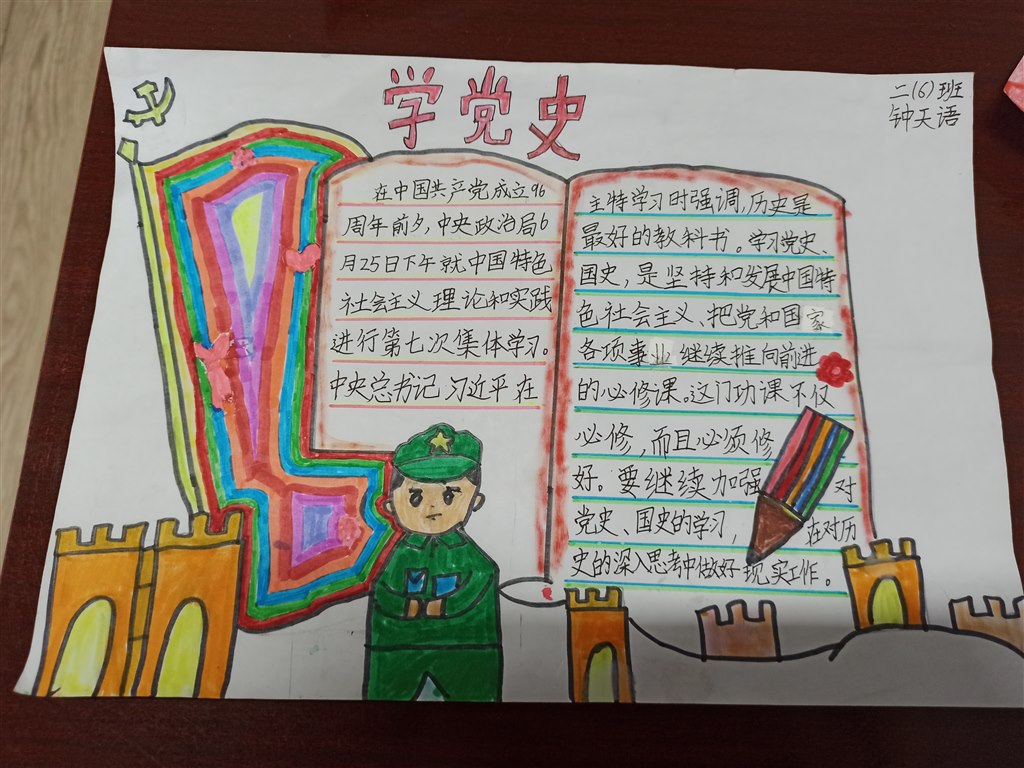 学党史
二(6)班
钟天语
在中国共产党成立96
周年前夕,中央政治局6
月25日下午就中国特色
社会主义理论和实践
进行第七次集体学习。
中央总书记习近平在
主特学习时强调,历史是
最好的教科书。学习党史、
国史,是坚持和发展中国特
色社会主义、把党和国家
各项事业继续推向前进
的必修课。这门功课不仅
必修,而且必须修
好。要继续加强对
党史、国史的学习,在对历
史的深入思考中做好现实工作。